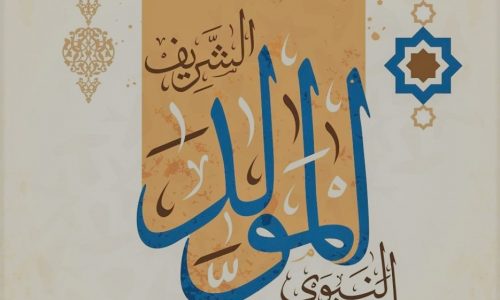 المولد
النبوي
الشَّريف